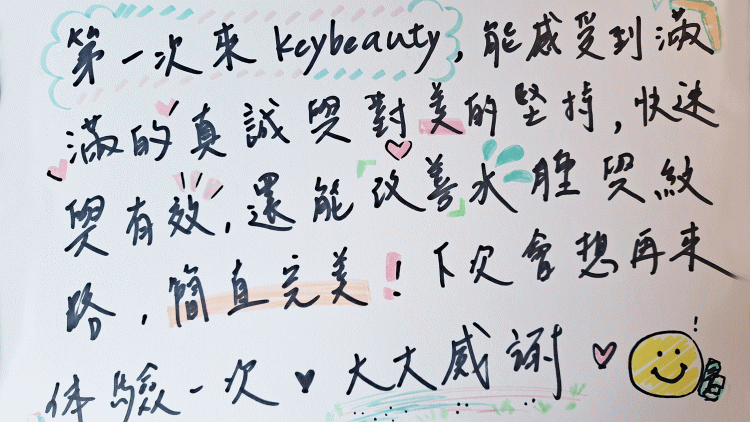 第一次來 keybeauty, 能感受到滿
滿的真誠與對美的堅持, 快速
與有效, 還能改善水腫與紋
路, 簡直完美! 下次會想再來
体驗一次♥大大感謝♥